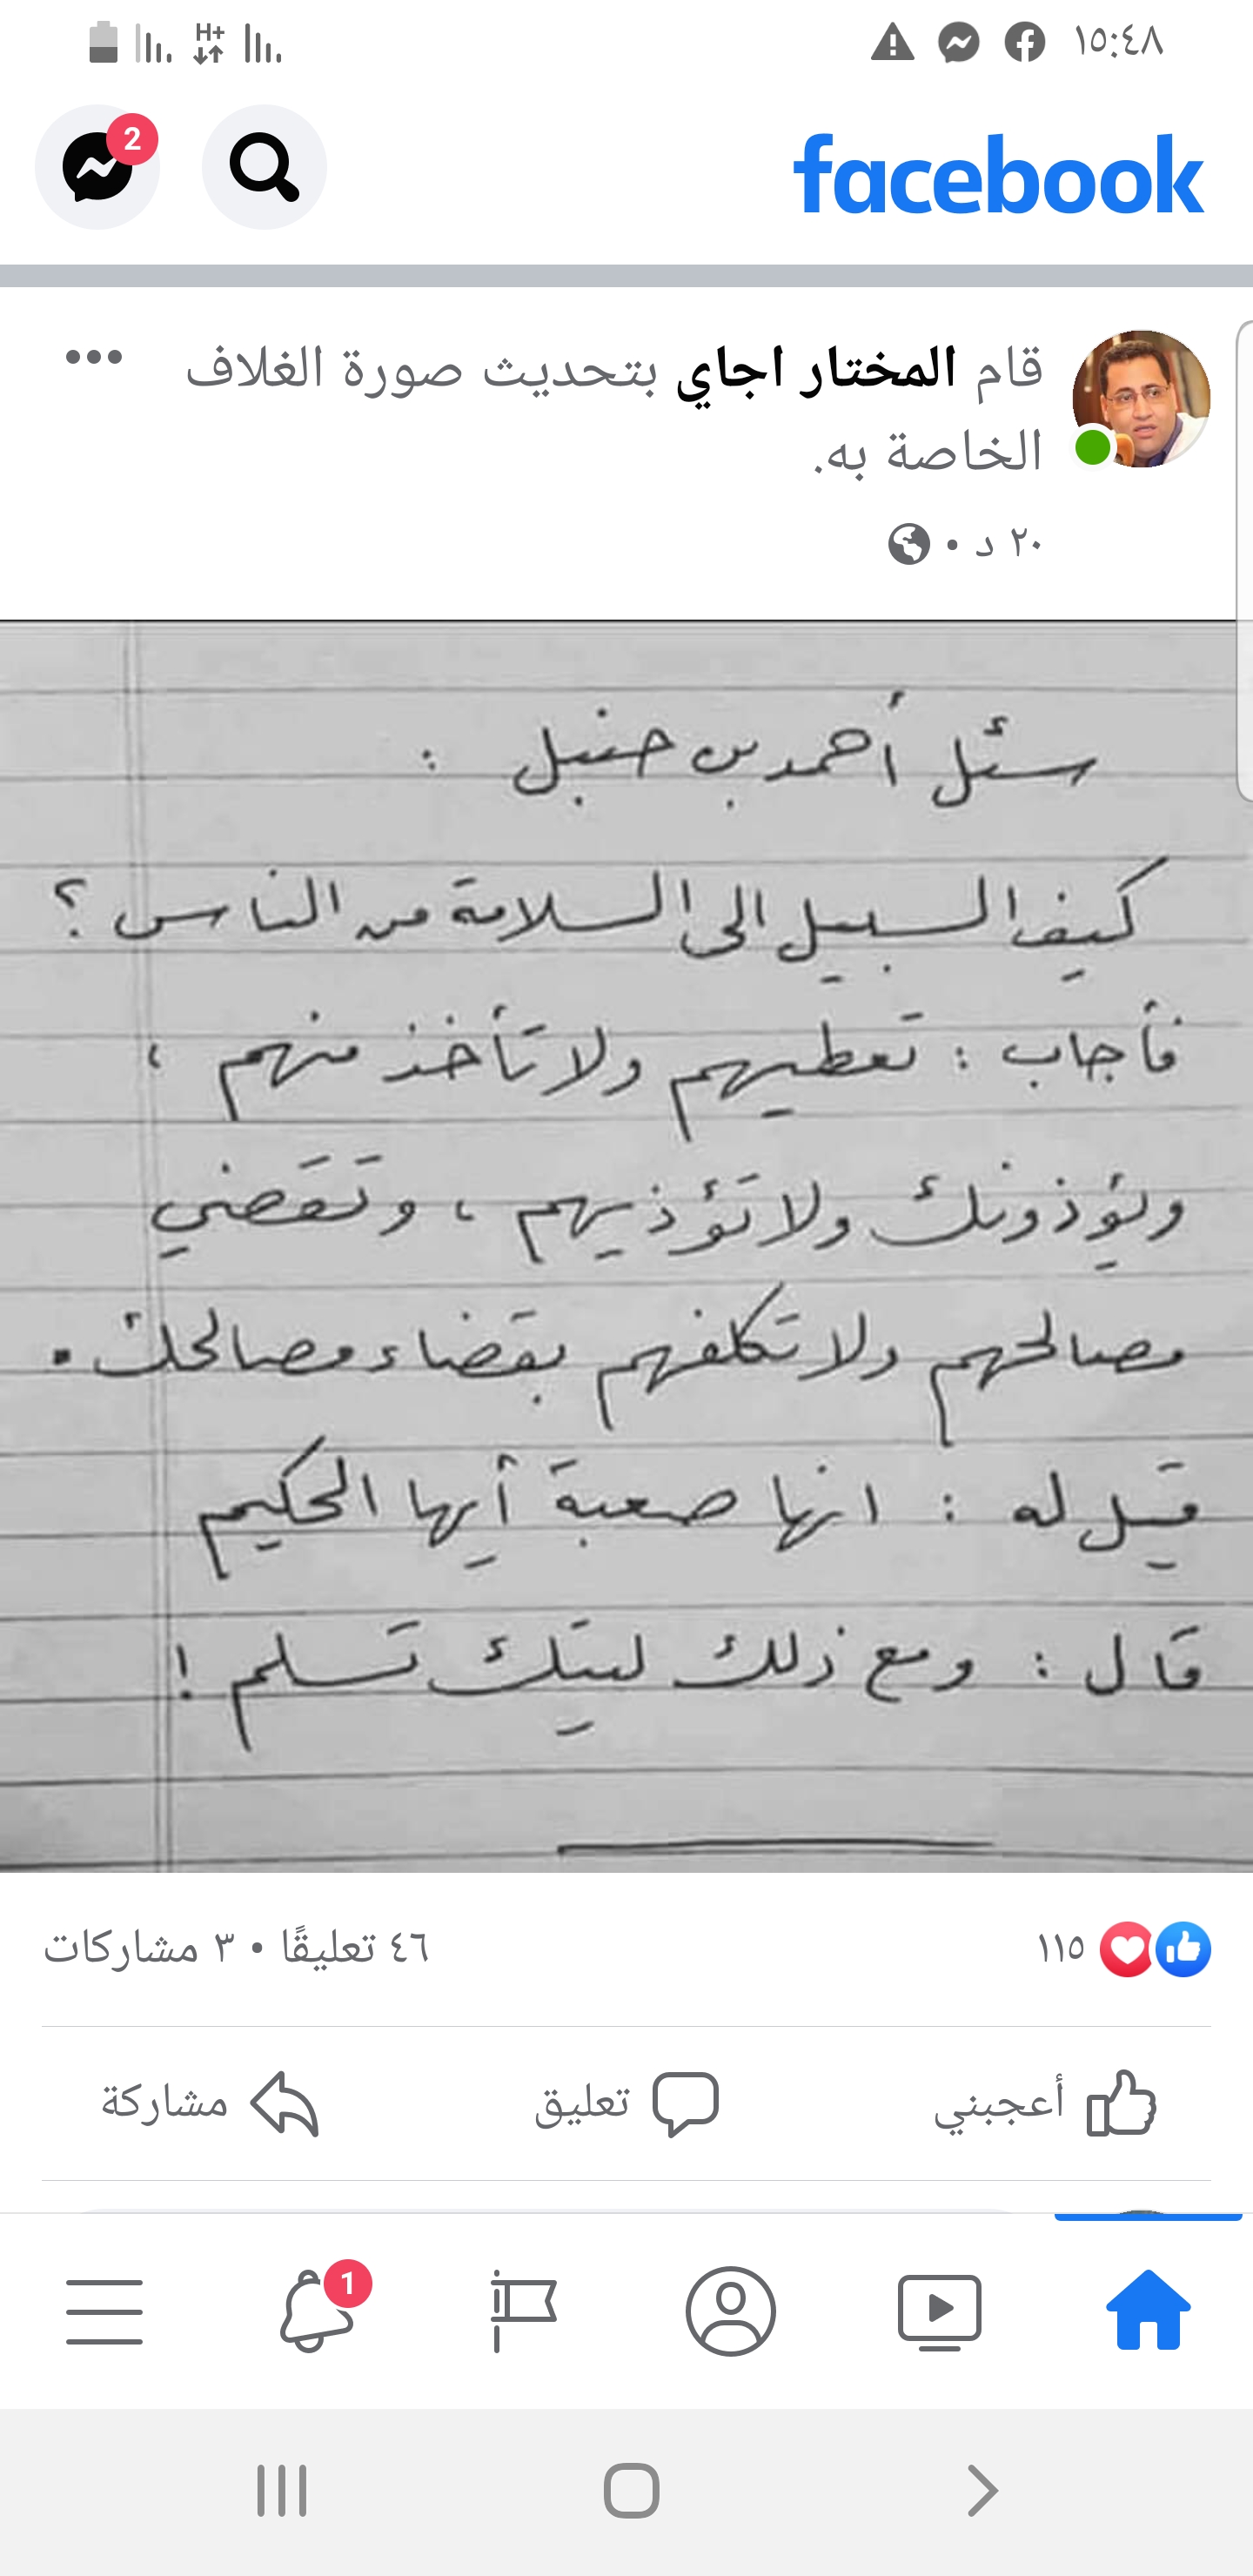 ١٥:٤٨
H+
facebook
2
قام المختار اجاي بتحديث صورة الغلاف
الخاصة به.
٢٠ د •
سئل أحمد بن حنبل :
كيف السبيل الى السلامة من الناس ؟
فأجاب : تعطيهم ولا تأخذ منهم ،
ويؤذونك ولا تؤذيهم ، وتقضي
مصالحهم ولا تكلفهم بقضاء مصالحك .
قيل له : انها صعبة أيها الحكيم
قال : ومع ذلك ليتك تسلم !
١١٥
٤٦ تعليقًا • ٣ مشاركات
أعجبني
تعليق
مشاركة
1